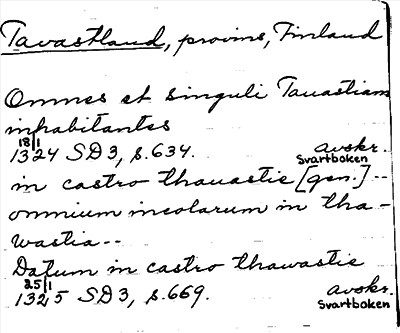 Tavastland, provins, Finland
Omnes et singuli Tauastiam
inhabitantes
18/1
1324 SD3, s. 634. avskr.
Svartboken
in castro thauastie [gen.]--
omnium incolarum in tha-
wastia--
Datum in castro thawastie
25/1
1325 SD3, s. 669. avskr.
Svartboken